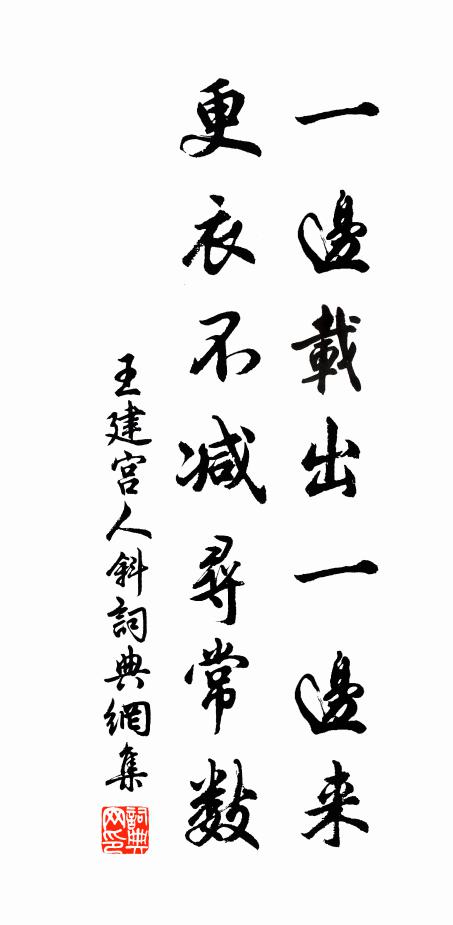 一邊載出一邊来
更衣不减尋常数
王建宫人斜詞典網集
詞典网印